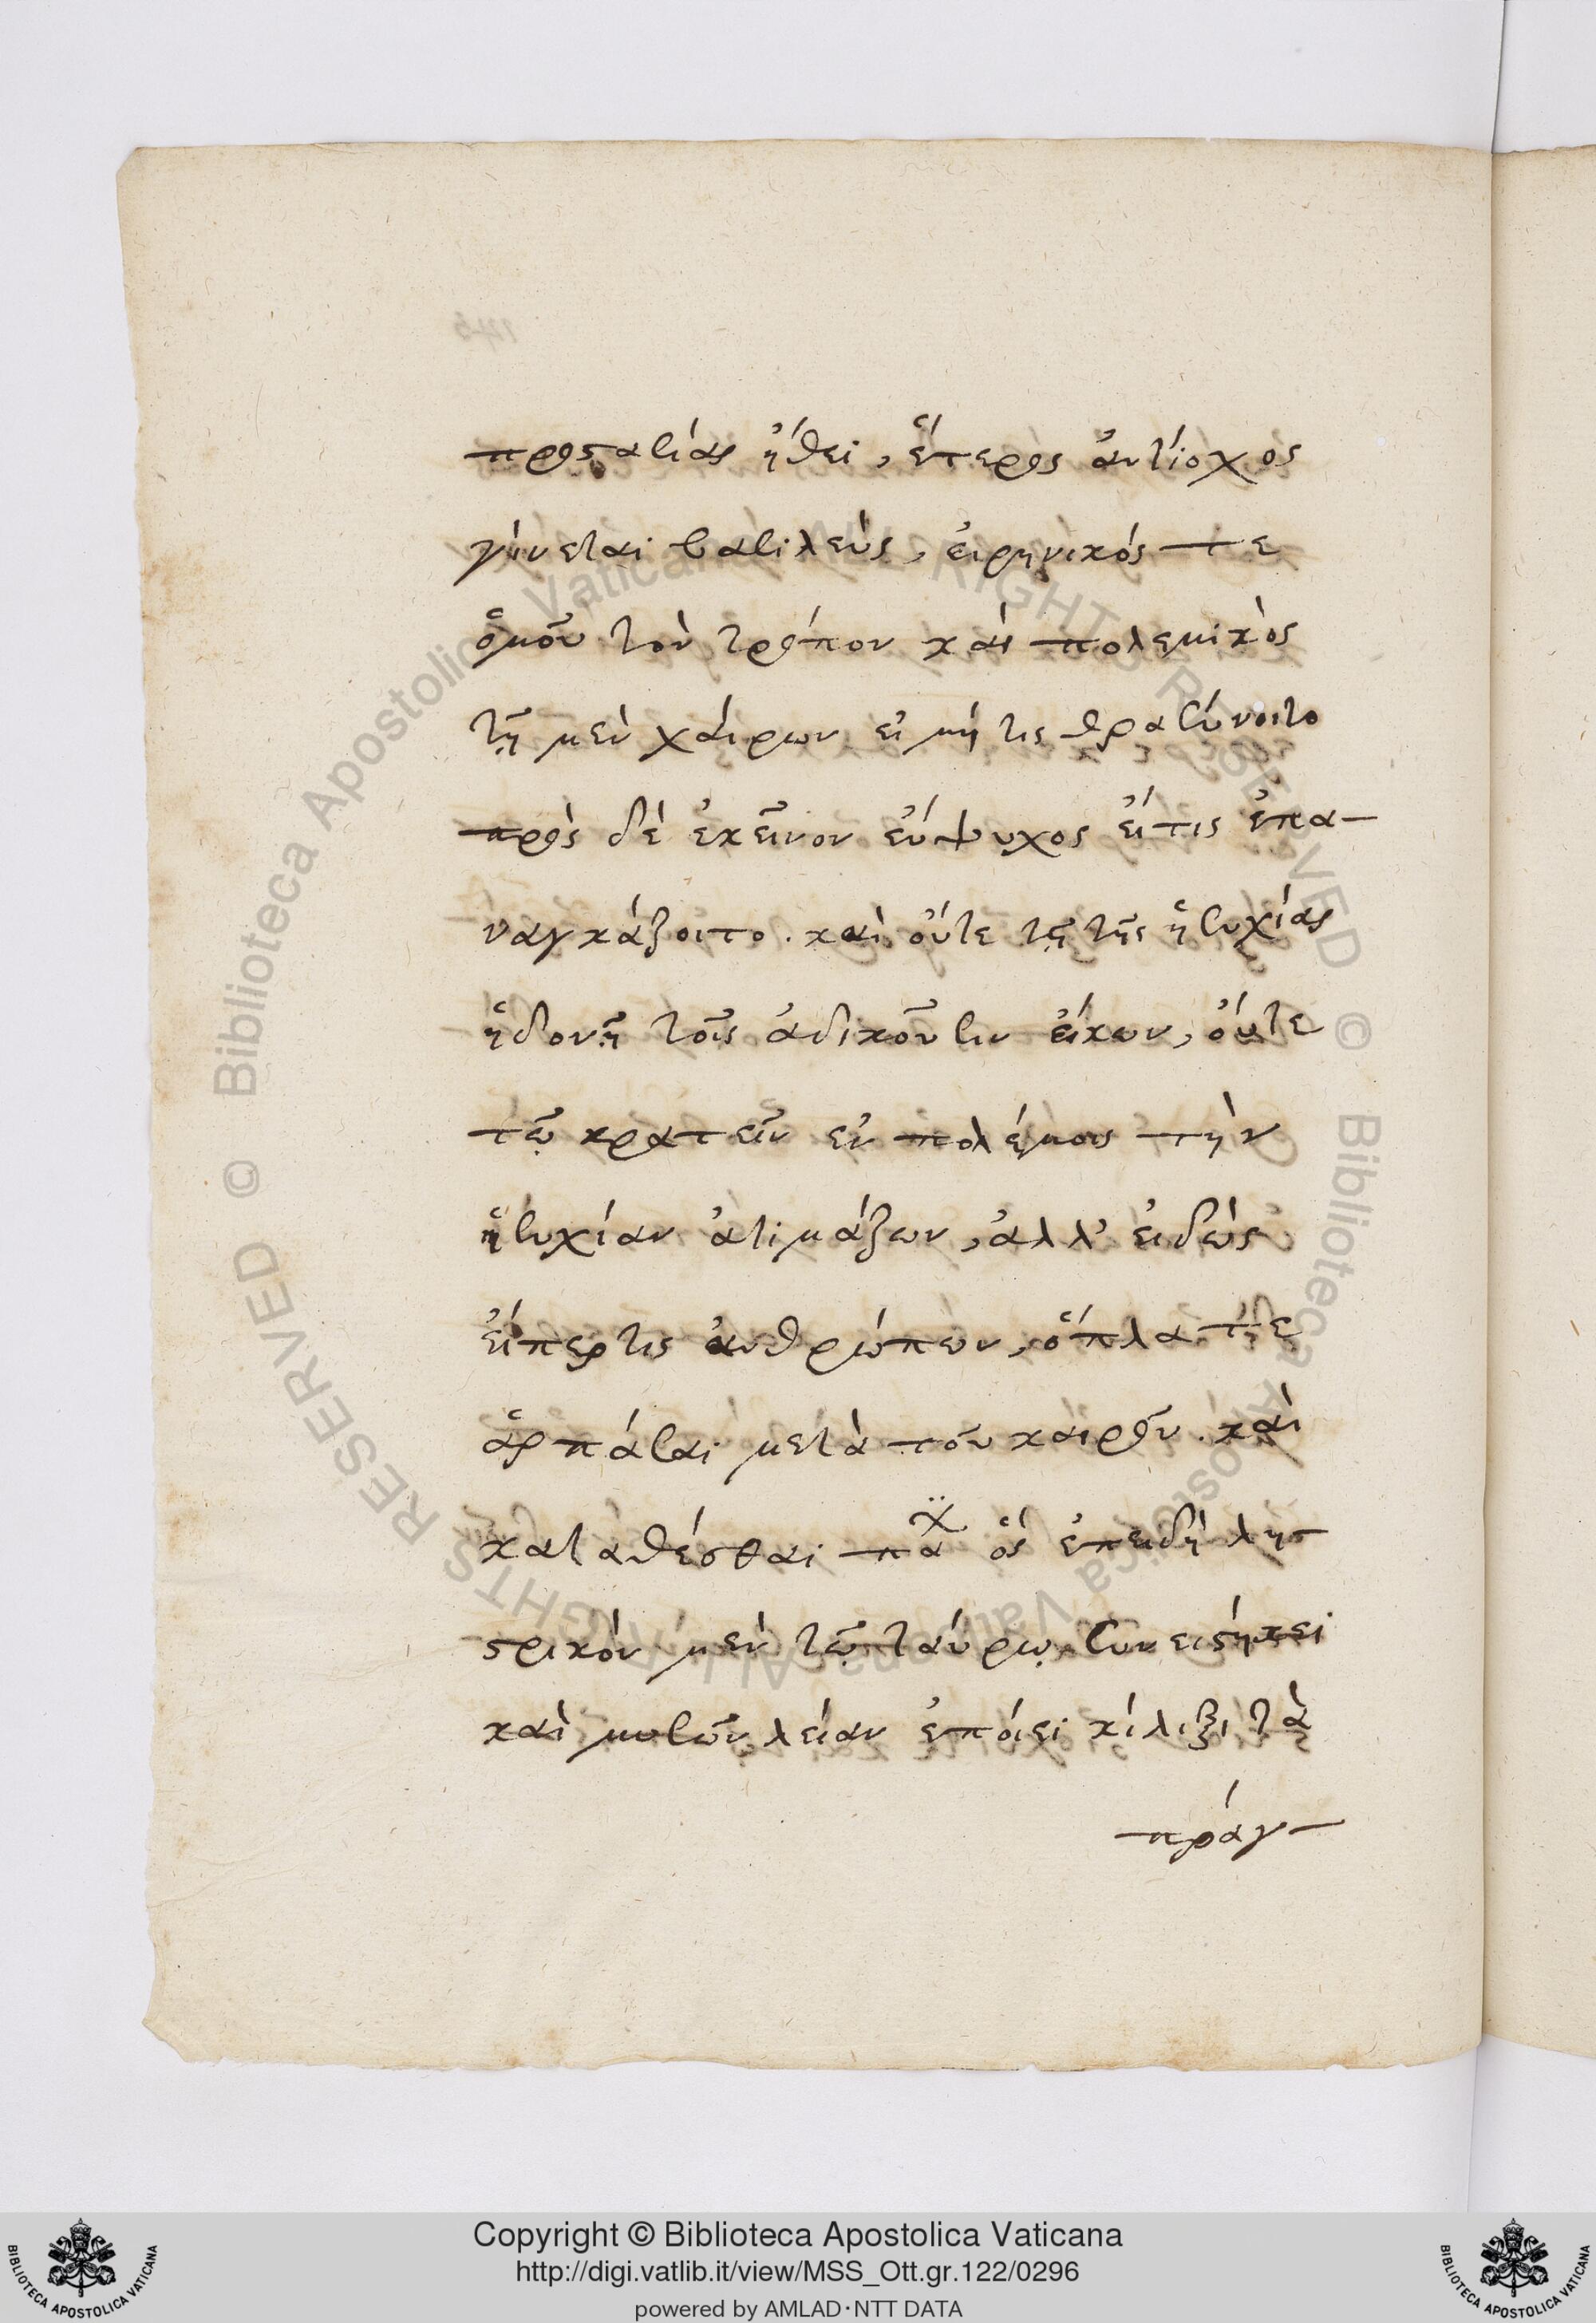 προστασίας ἤθει, ἕτερος ἀντίοχος
γίνεται βασιλεὺς, εἰρηνικός τε
ὁμοῦ τὸν τρόπον καὶ πολεμικὸς
τῇ μὲν χαίρων εἰ μή τις θρασύνοιτο
πρὸς δὲ ἐκεῖνον εὔψυχος εἴ τις ἐπα-
ναγκάζοιτο. καὶ οὔτε τῇ τῆς ἡσυχίας
ἡδονῇ τοῖς ἀδικοῦσιν εἴκων, οὔτε
τῷ κρατεῖν ἐν πολέμοις τὴν
ἡσυχίαν ἀτιμάζων, ἀλλ' εἰδὼς
εἴπερ τις ἀνθρώπων, ὅπλα τε
ἁρπάσαι μετὰ τοῦ καιροῦ. καὶ
καταθέσθαι πα̈χ ὃς ἐπειδὴ λησ
τρικὸν μὲν τῷ ταύρῳ συνειστήκει
καὶ μυσῶν λείαν ἐποίει κίλιξι τὰ
πράγ-
Copyright © Biblioteca Apostolica Vaticana
http://digi.vatlib.it/view/MSS_Ott.gr.122/0296
powered by AMLAD·NTT DATA
BIBLIOTECA APOSTOLICA VATICANA
BIBLIOTECA APOSTOLICA VATICANA
© Biblioteca Apostolica Vaticana ALL RIGHTS RESERVED
© Biblioteca Apostolica Vaticana ALL RIGHTS RESERVED